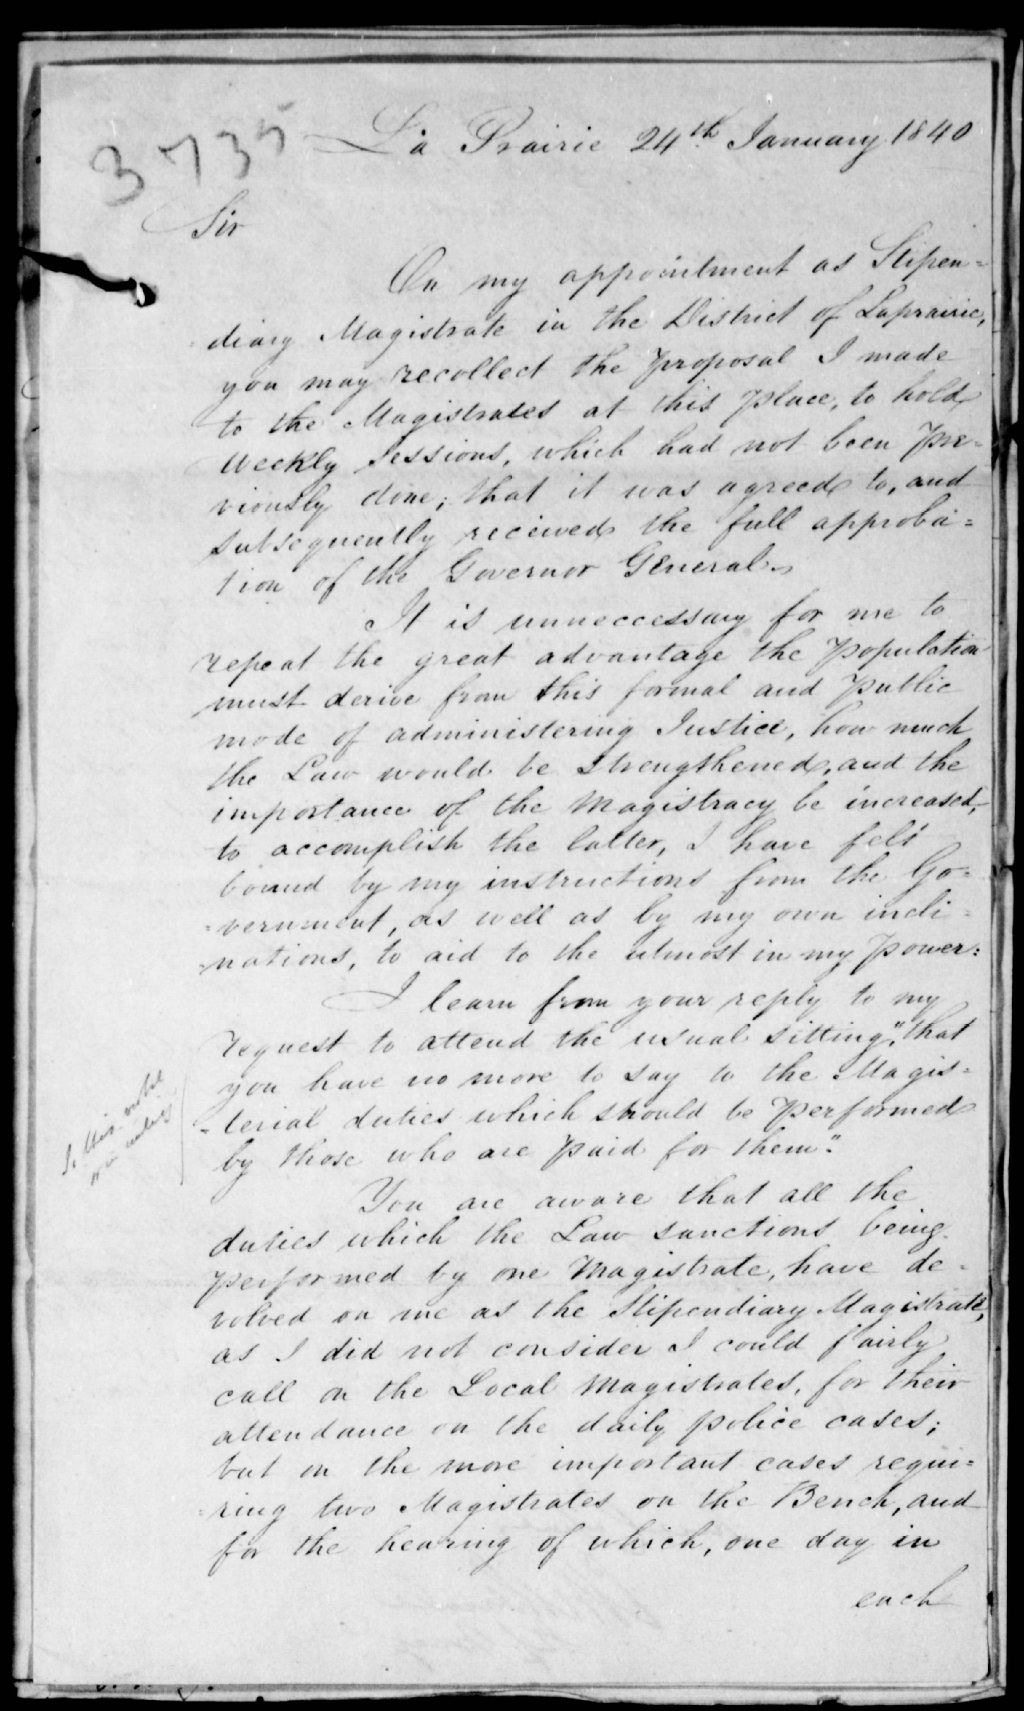 3735
La Prairie 24th January 1840
Sir
On my appointment as Stipen=
diary Magistrate in the District of Laprairie,
you may recollect the proposal I made
to the Magistrates at this place, to hold
Weekly Sessions, which had not been pre=
viously done; that it was agreed to, and
subsequently received the full approba=
tion of the Governor General.
It is unneccessary for me to
repeat the great advantage the population
must derive from this formal and public
mode of administering Justice, how much
the Law would be strengthened, and the
importance of the Magistracy be increased,
to accomplish the latter, I have felt
bound by my instructions from the Go=
=vernment, as well as by my own incli=
nations, to aid to the utmost in my power:
I learn from your reply to my
request to attend the usual sitting, "that
you have no more to say to the Magis=
=terial duties which should be performed
by those who are paid for them".
You are aware that all the
duties which the Law sanctions being
performed by one Magistrate, have de=
volved on me as the Stipendiary Magistrate,
as I did not consider I could fairly
call on the Local Magistrates, for their
attendance on the daily police cases;
but on the more important cases requi=
=ring two Magistrates on the Bench, and
for the hearing of which, one day in
each